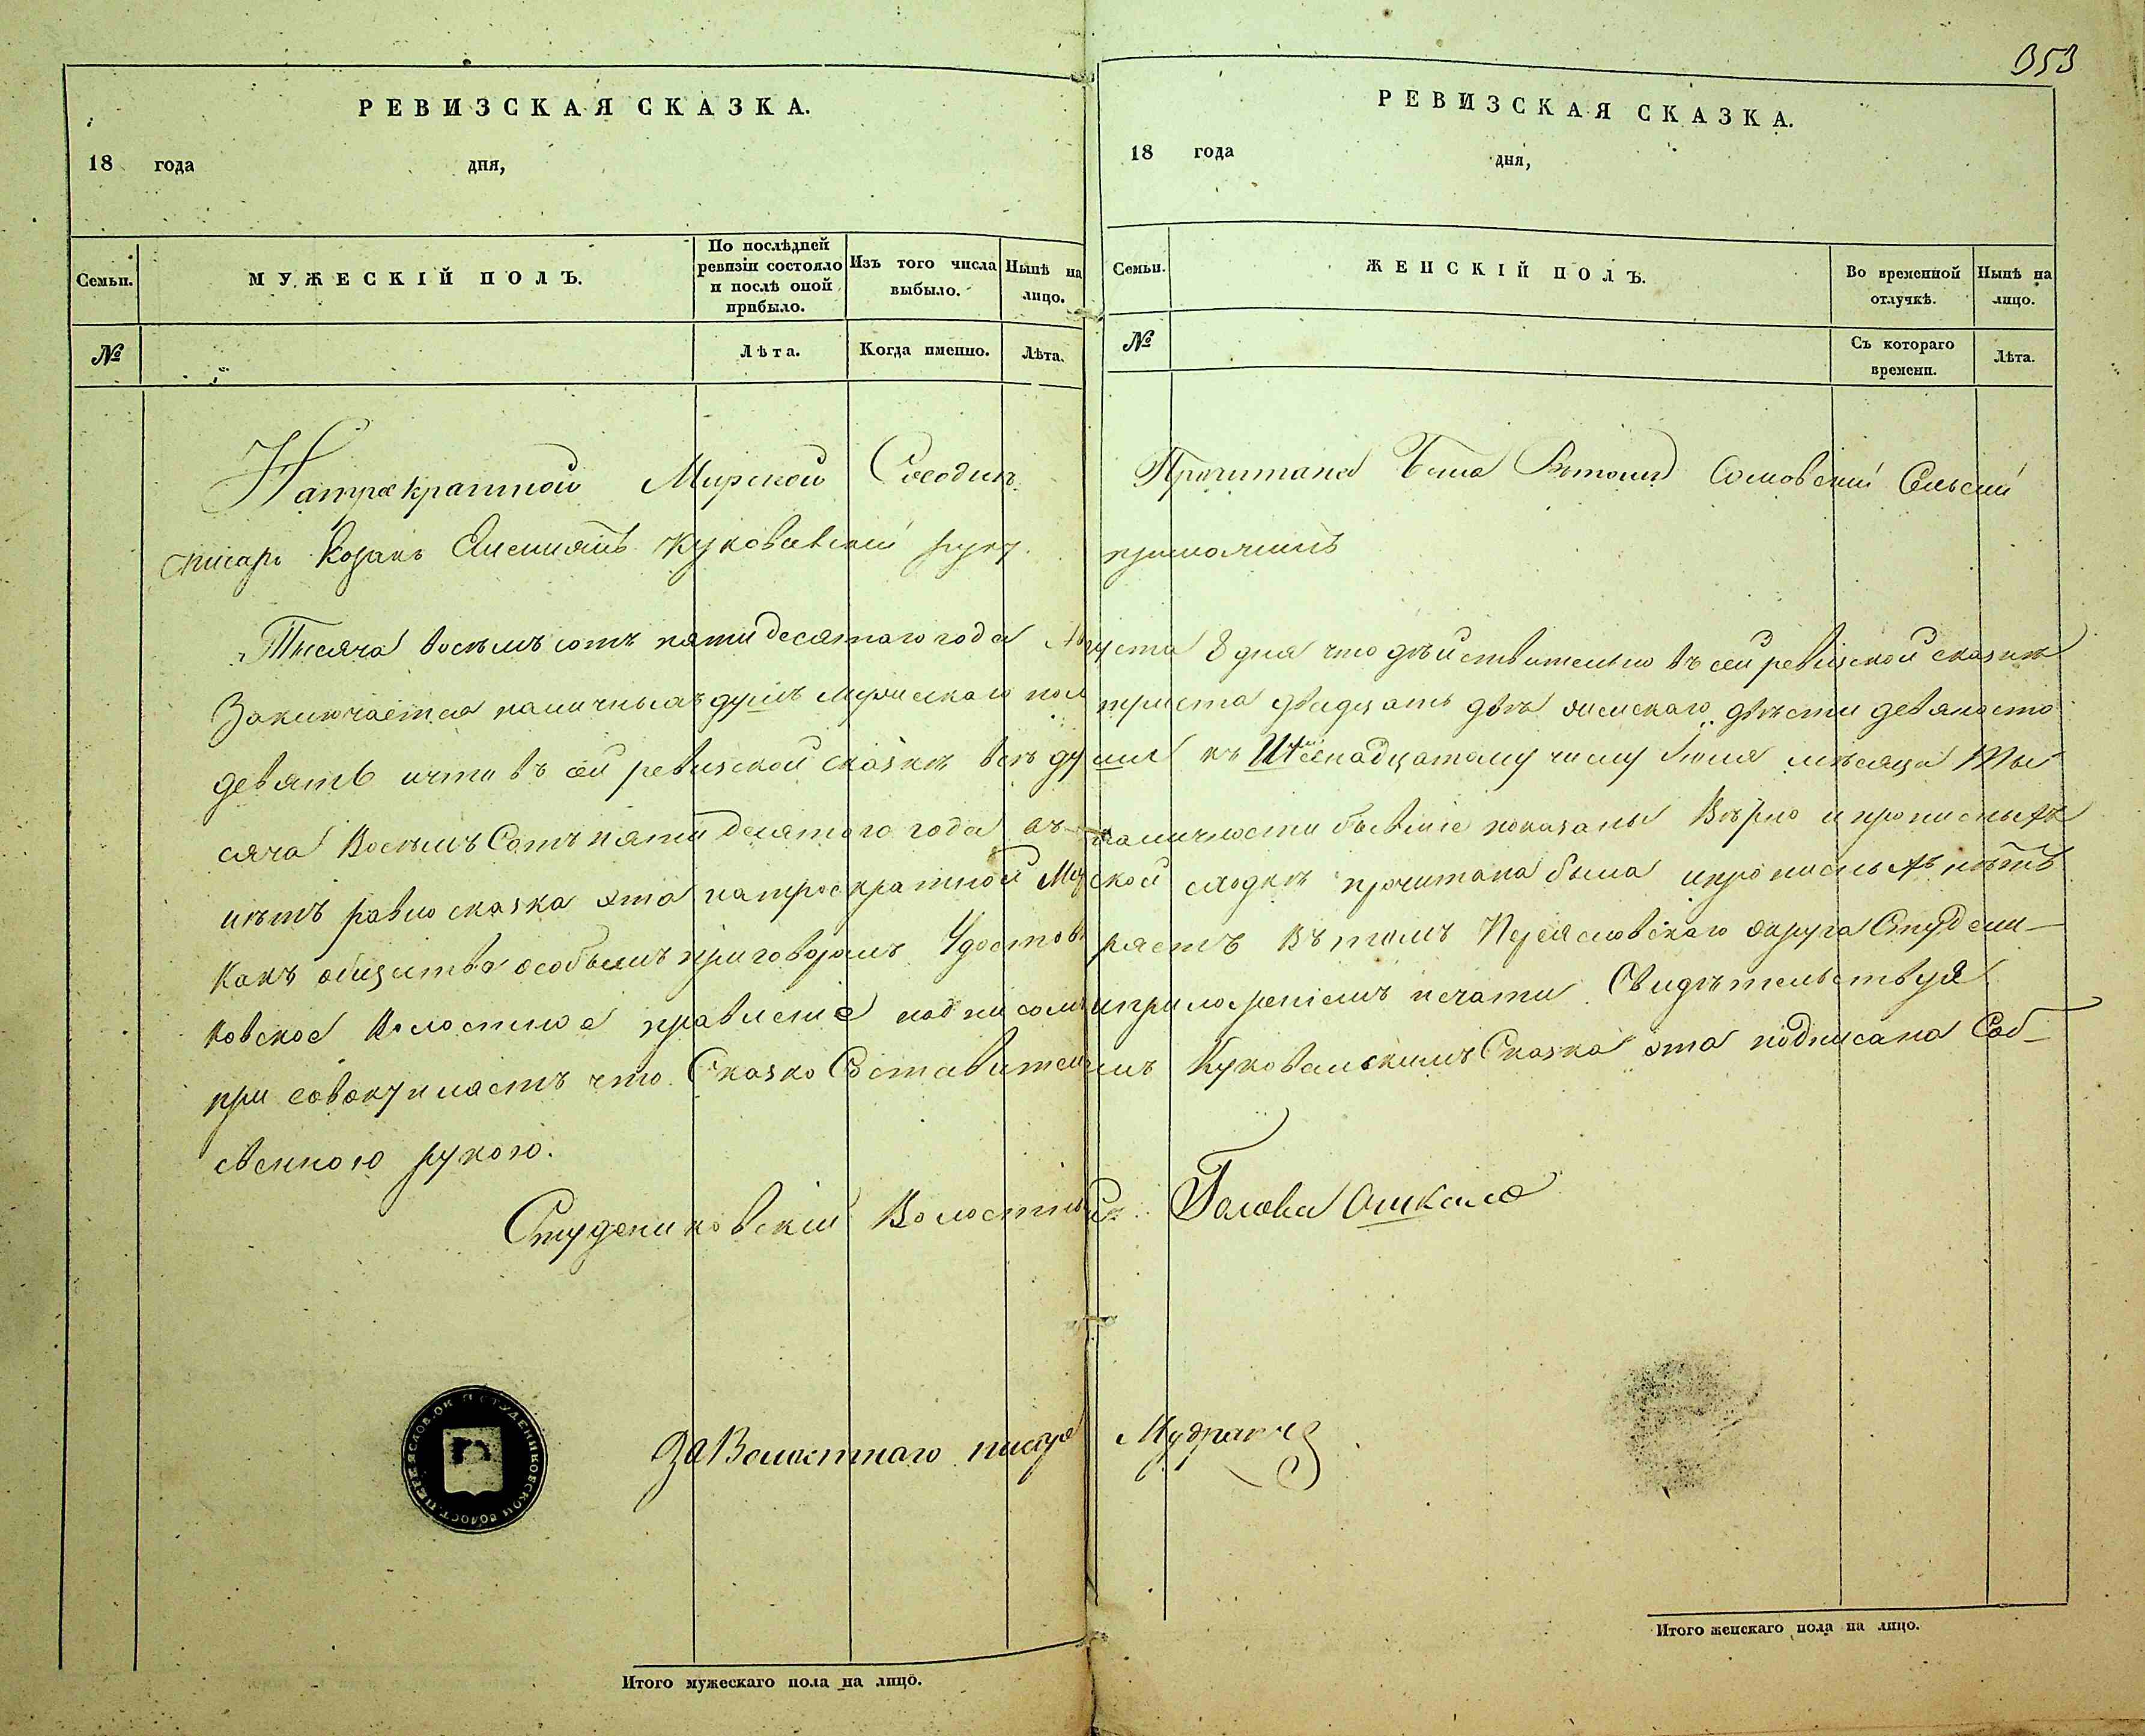 353
РЕВИЗСКАЯ СКАЗКА.
18 года дня,
Семьи.
МУЖЕСКІЙ ПОЛЪ.
По послѣдней ревизіи состояло и послѣ оной прибыло.
Изъ того числа выбыло.
Нынѣ на лицо.
№
Лѣта.
Когда именно.
Лѣта.
РЕВИЗСКАЯ СКАЗКА.
18 года дня,
Семьи.
ЖЕНСКІЙ ПОЛЪ.
Во временной отлучкѣ.
Нынѣ на лицо.
№
Съ котораго времени.
Лѣта.
На трекратной Мирской Сходкѣ Прочитана Была Сельскій
писарь Козакъ Куковскій руку приложилъ
Тысяча восемьсотъ пятидесятаго года Августа 8 дня что дѣйствительно въ сей ревизской сказкѣ
Заключается наличныхъ душъ мужескаго пола триста двадцать двѣ женскаго двѣсти девяносто
девять и что въ сей ревизской сказкѣ всѣ души къ числу Іюня мѣсяца Ты-
сяча Восемь Сотъ пятидесятого года въ наличности бывшіе показаны Вѣрно и прописныхъ
нѣтъ равно сказка эта на троекратной Мирской сходкѣ прочитана была и прописныхъ нѣтъ
какъ общество особымъ приговоромъ Удостовѣряетъ въ томъ Переяславскаго округа Студени-
ковское Волостное правленіе подписомъ и приложеніемъ печати Свидѣтельствуя
при совокупляетъ что Сказко Составителемъ Сказка эта подписана Соб-
ственною рукою.
Студениковскій Волостный Голова Ошкало
За Волостнаго писаря
Итого мужескаго пола на лицо.
Итого женскаго пола на лицо.